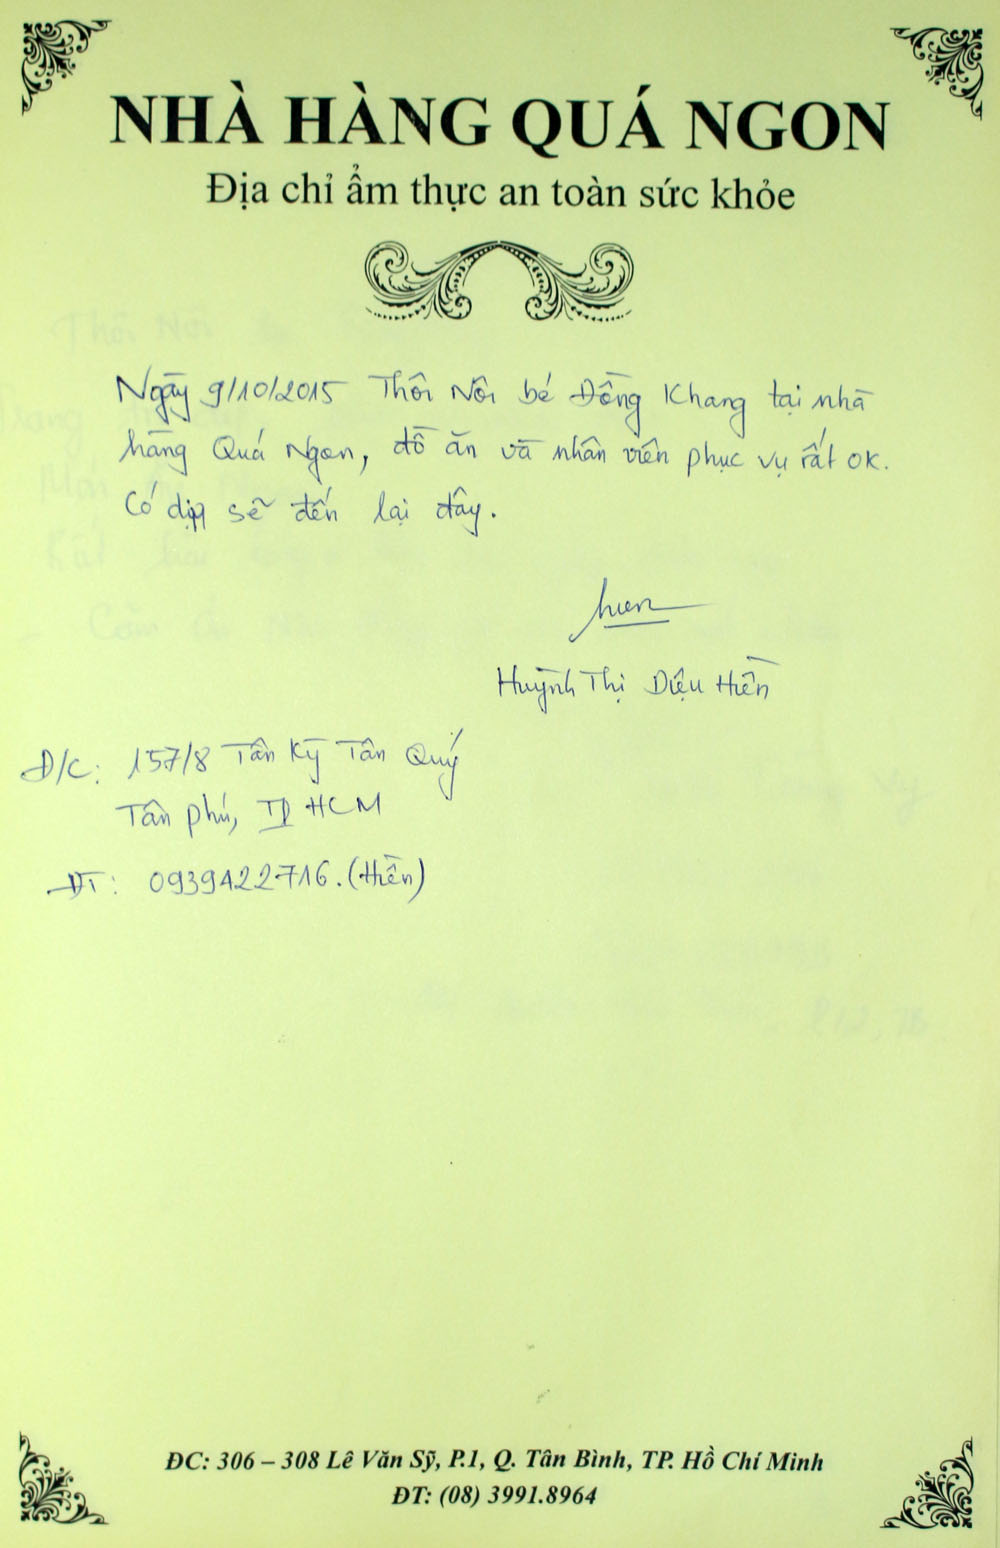 NHÀ HÀNG QUÁ NGON
Địa chỉ ẩm thực an toàn sức khỏe
Ngày 9/10/2015 Thôi Nôi bé Đồng Khang tại nhà
hàng Quá Ngon, đồ ăn và nhân viên phục vụ rất ok.
Có dịp sẽ đến lại đây.
hien
Huỳnh Thị Diệu Hiền
Đ/C: 157/8 Tân Kỳ Tân Quý
Tân phú, TP HCM
ĐT: 0939422716. (Hiền)
ĐC: 306 – 308 Lê Văn Sỹ, P.1, Q. Tân Bình, TP. Hồ Chí Minh
ĐT: (08) 3991.8964